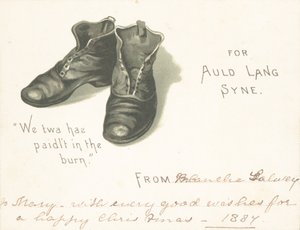 FOR
AULD LANG
SYNE.
"We twa hae
paidl't in the
burn."
FROM Blanche Galwey
To Mary - with every good wishes for
a happy Christmas - 1887